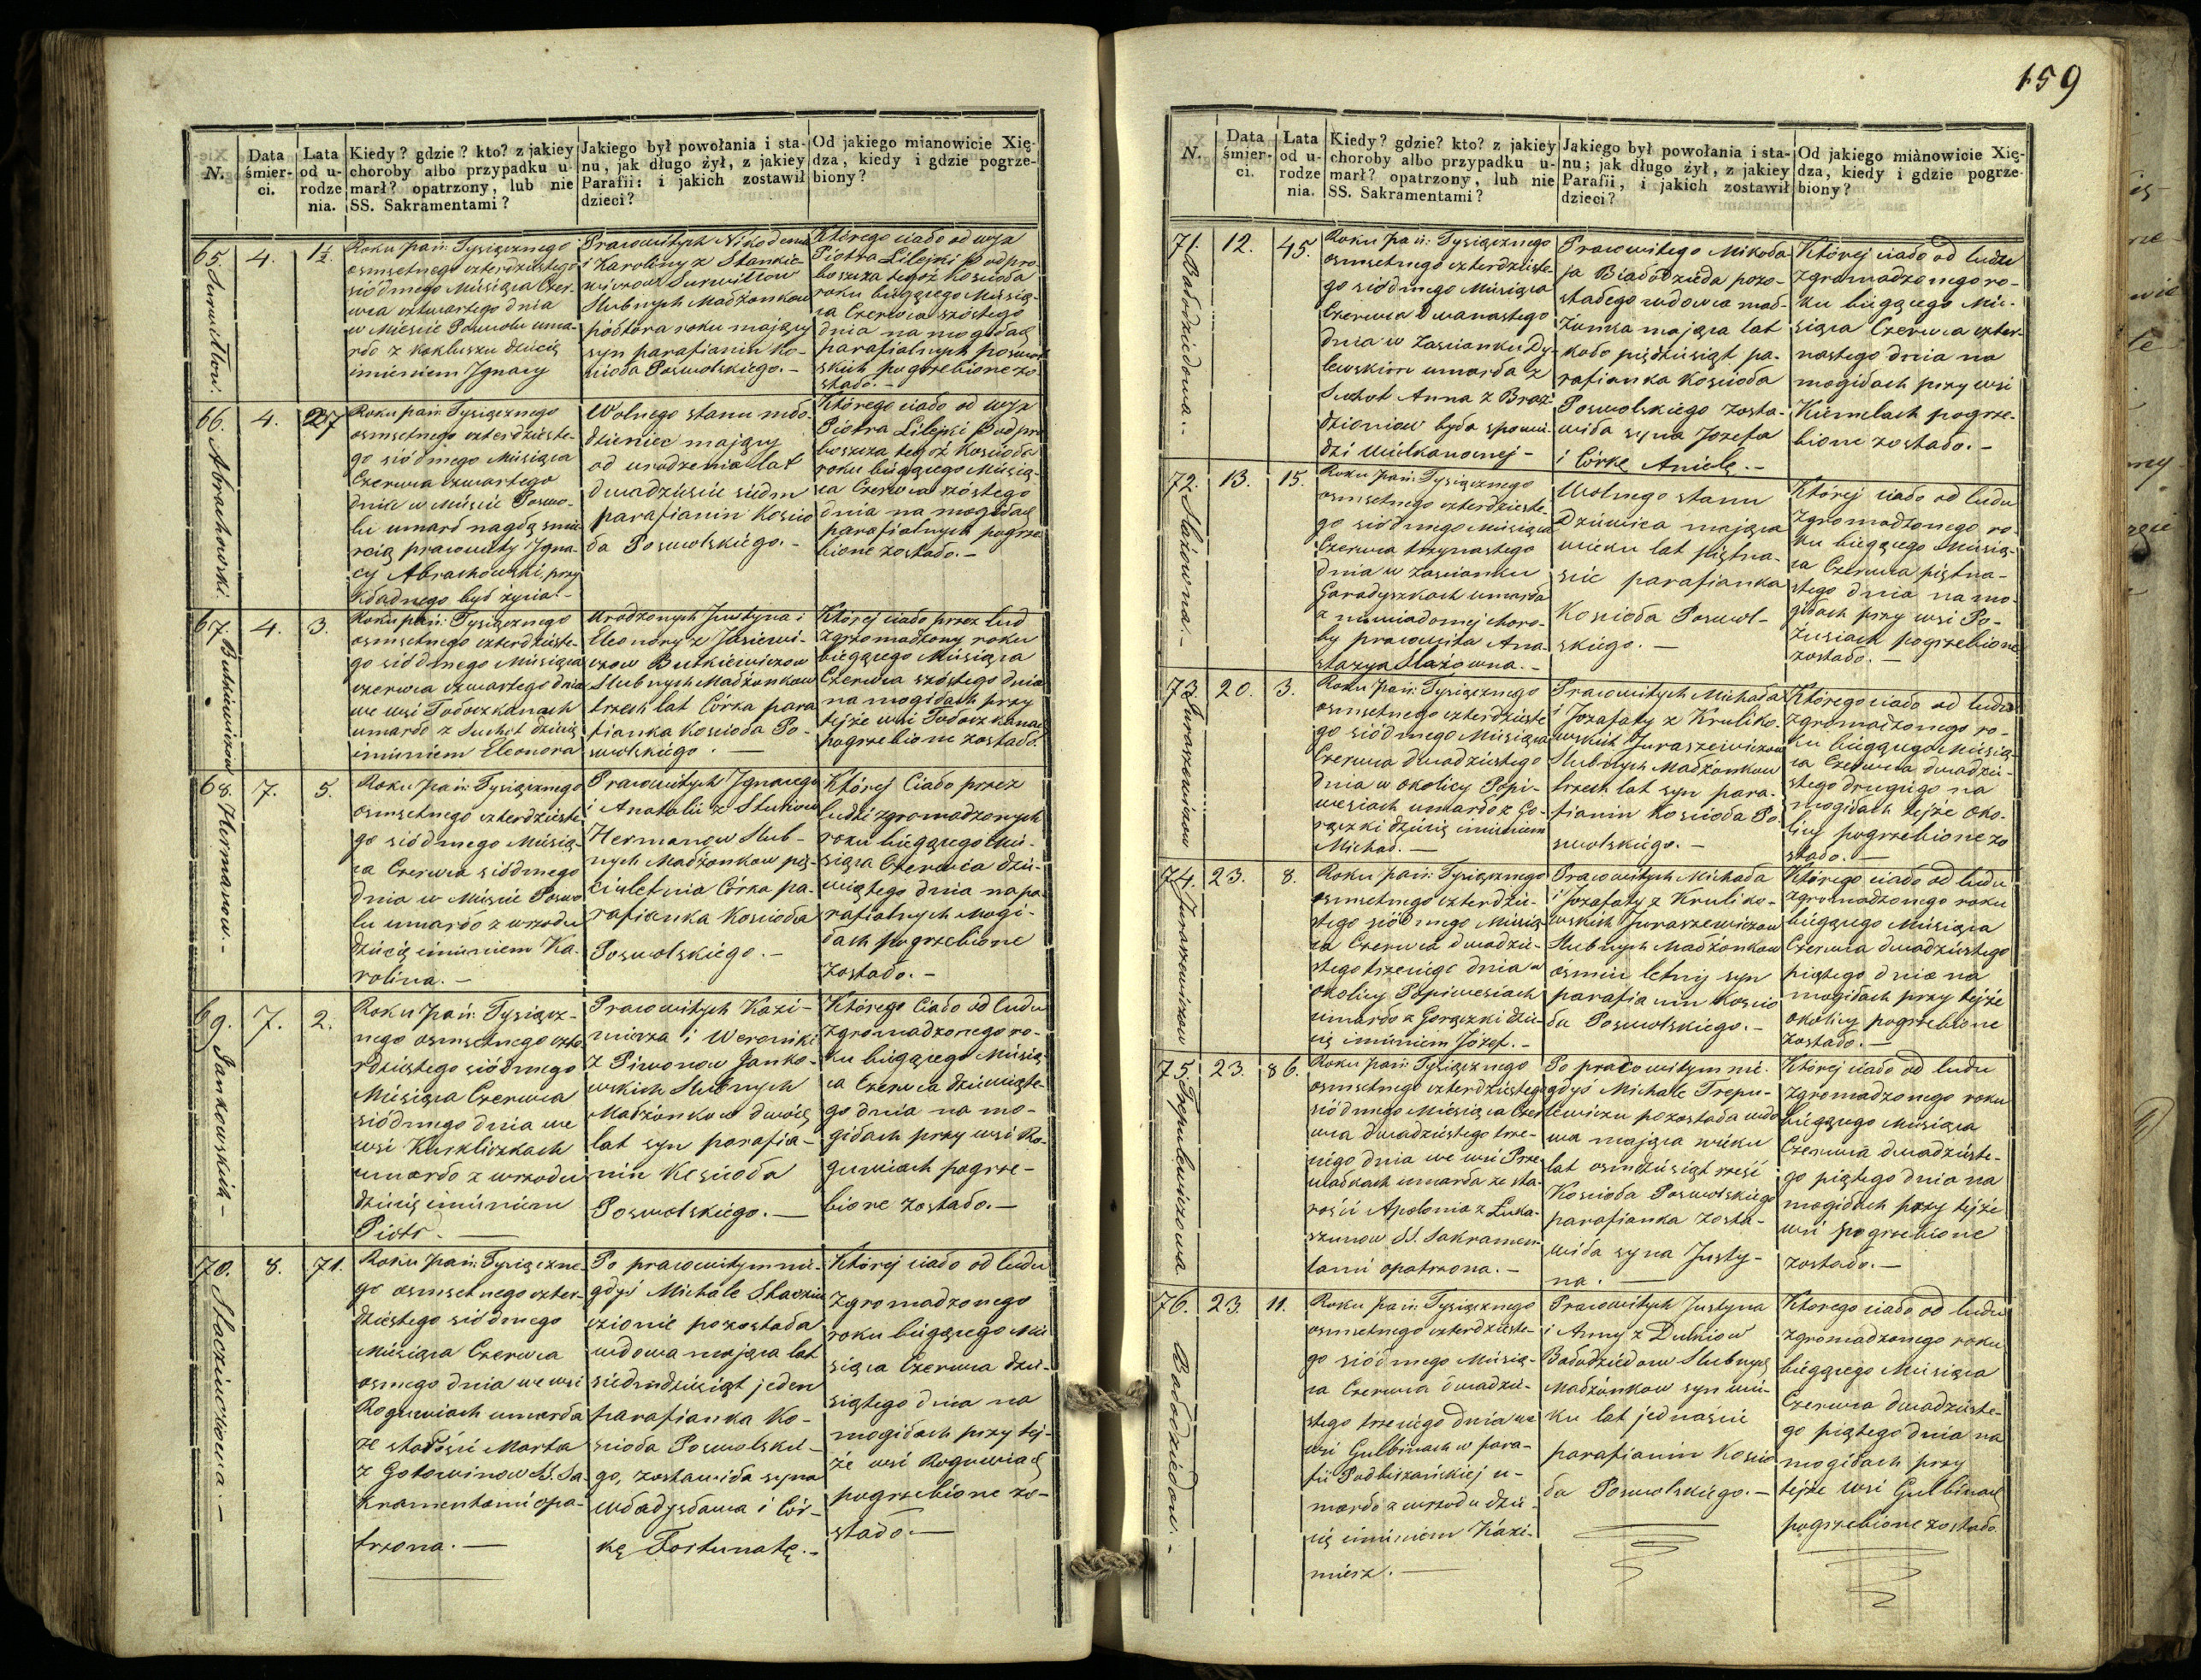 N.
Data śmier-
ci.
Lata
od u-
rodze
nia.
Kiedy? gdzie? kto? z jakiey
choroby albo przypadku u-
marł? opatrzony, lub nie
SS. Sakramentami?
Jakiego był powołania i sta-
nu, jak długo żył, z jakiey
Parafii: i jakich zostawił
dzieci?
Od jakiego mianowicie Xię-
dza, kiedy i gdzie pogrze-
biony?
65. Surwiłłow.
4.
1½.
Roku pań: Tysiącznego
osmsetnego czterdziestego
siódmego Miesiąca Czer-
wca czwartego dnia
w Mieście Poswolu uma-
rło z kokluszu dziecię
imieniem Ignacy
Prawowitych Nikodema
i Karoliny z Stankie-
wiczow Surwiłłow
Slubnych Małżonkow
półtora roku mający
syn parafianin Ko-
ścioła Poswolskiego.-
Którego ciało od wzx
Piotra Lilejki Podpro-
boszcza tegoż Kościoła
roku biegącego Miesią-
ca Czerwca szóstego
dnia na mogiłach
parafialnych poswol-
skich pogrzebione zo-
stało.-
66. Abrachowski.
4.
27
Roku pań: Tysiącznego
osmsetnego czterdzieste-
go siódmego Miesiąca
Czerwca czwartego
dnia w Mieście Poswo-
lu umarł nagłą śmie-
rcią prawowity Igna-
cy Abrachowski, przy
kładnego był życia.-
Wolnego stanu mło-
dzieniec mający
od urodzenia lat
dwadzieście siedm
parafianin Koscio
ła Poswolskiego.-
Którego ciało od wzx
Piotra Lilejki Podpro
boszcza tegoż Kościoła
roku bieącego Miesią-
ca Czerwca szóstego
dnia na mogiłach
parafialnych pogrze
bione zostało.-
67. Butkiewiczow
4.
3.
Roku pań: Tysiącznego
osmsetnego czterdzieste-
go siódmego Miesiąca
czerwca czwartego dnia
we wsi Tołoczkanach
umarło z Suchot dziecię
imieniem Eleonora
Urodzonych Justyna i
Eleonory z Jasiewi-
czow Butkiewiczow
Slubnych Małżonkow
trzech lat Córka para
fianka Kościoła Po-
swolskiego.-
Której ciało przez lud
zgromadzony roku
biegącego Miesiąca
Czerwca szóstego dnia
na mogiłach przy
tejże wsi Tołoczkanach
pogrzebione zostało.
68. Hermanow.-
7.
5.
Roku pań: Tysiącznego
osmsetnego czterdzieste
go siódmego Miesią-
ca Czerwca siódmego
dnia w Mieście Poswo
lu umarło z wrzodu
dziecię imieniem Ka-
rolina.-
Prawowitych Ignacego
i Anatalii z
Hermanow Slub-
nych Małżonkow pię-
cioletnia Córka pa-
rafianka Kościoła
Poswolskiego.-
Której Ciało przez
ludzi zgromadzonych
roku biegącego Mie-
siąca Czerwca dzie-
wiątego dnia na pa-
rafialnych Mogi-
łach pogrzebione
zostało.-
69. Jankowskich-
7.
2.
Roku pań: Tysiącz-
nego osmsetnego czte-
rdziestego siódmego
Miesiąca Czerwca
siódmego dnia we
wsi Kurkliczkach
umarło z wrzodu
dziecię imieniem
Piotr.-
Prawowitych Kazi-
mierza i Weroniki
z Piwonow Janko-
wskich Slubnych
Małżonkow dwóch
lat syn parafia-
nin Kościoła
Poswolskiego.-
Którego Ciało od ludu
zgromadzonego ro-
ku biegącego Miesią-
ca Czerwca dziewiąte-
go dnia na mo-
giłach przy wsi Ro-
guwiach pogrze-
bione zostało.-
70. Stacziunowa.-
8.
71.
Roku pań: Tysiączne-
go osmsetnego czter-
dziestego siódmego
Miesiąca Czerwca
osmego dnia we wsi
Roguwiach umarła
ze starości Marta
z Gotowinow SS. Sa-
kramentami opa-
trzona.-
Po prawowitym nie-
gdyś Michale
pozostała
wdowa mająca lat
siedmdziesiąt jeden
parafianka Ko-
ścioła Poswolskie-
go, zostawiła syna
Władysława i Cór-
kę Fortunatę.-
Której ciało od ludu
zgromadzonego
roku biegącego Mie
siąca Czerwca dzie-
siątego dnia na
mogiłach przy tej-
że wsi Roguwiach
pogrzebione zo-
stało.-
159
N.
Data
śmier-
ci.
Lata
od u-
rodze
nia.
Kiedy? gdzie? kto? z jakiey
choroby albo przypadku u-
marł? opatrzony, lub nie
SS. Sakramentami?
Jakiego był powołania i sta-
nu; jak długo żył, z jakiey
Parafii, i jakich zostawił
dzieci?
Od jakiego mianowicie Xię-
dza, kiedy i gdzie pogrze-
biony?
71.
12.
45.
Roku pań: Tysiącznego
osmsetnego czterdzieste-
go siódmego Miesiąca
Czerwca Dwanastego
dnia w Zaścianku Dy-
lewskim umarła z
Suchot Anna z Braz-
dzioniow była spowie-
dzi Wielkanocnej-
Prawowitego Mikoła
ja pozo-
stałego wdowca mał-
żonka mająca lat
koło pięćdziesiąt pa-
rafianka Kościoła
Poswolskiego zosta-
wiła syna Jozefa
i Córkę Anielę.-
Której ciało od ludu
zgromadzonego ro-
ku biegącego Mie-
siąca Czerwca czter-
nastego dnia na
mogiłach przy wsi
Kiemelach pogrze-
bione zostało.-
72. Slażowna.-
13.
15.
Roku pań: Tysiącznego
osmsetnego czterdzieste-
go siódmego Miesiąca
Czerwca trzynastego
dnia w Zaścianku
Garadyszkach umarła
z niewiadomej choro-
by prawowita Ana-
stazya Slażowna.-
Wolnego stanu
Dziewica mająca
wieku lat piętna-
ście parafianka
Kościoła Poswol-
skiego.-
Której ciało od ludu
zgromadzonego ro-
ku biegącego Miesią-
ca Czerwca piętna-
stego dnia na mo-
giłach przy wsi Po-
żusiach pogrzebione
zostało.-
73. Juraszewiczow
20.
3.
Roku pań: Tysiącznego
osmsetnego czterdzieste
go siódmego Miesiąca
Czerwca dwadziestego
dnia w okolicy Popi-
wesiach umarło z Go-
rączki dziecię imieniem
Michał.-
Prawowitych Michała
i Jozafaty z Kruliko-
wskich Juraszewiczow
Slubnych Małżonkow
trzech lat syn para-
fianin Kościoła Po-
swolskiego.-
Którego ciało od ludu
zgromadzonego ro-
ku biegącego Miesią-
ca Czerwca dwadzie-
stego drugiego na
mogiłach tejże oko-
licy pogrzebione zo
stało.-
74. Juraszewiczow
23.
8.
Roku pań: Tysiącznego
osmsetnego czterdzie-
stego siódmego Miesią-
ca Czerwca dwadzie-
stego trzeciego dnia w
okolicy Popiwesiach
umarło z Gorączki dzie-
cię imieniem Józef.-
Prawowitych Michała
i Jozafaty z Kruliko-
wskich Juraszewiczow
Slubnych Małżonkow
ośmiu letny syn
parafianin Koscio
ła Poswolskiego.-
Którego ciało od ludu
zgromadzonego roku
biegącego Miesiąca
Czerwca dwadziestego
piątego dnia na
mogiłach przy tejże
okolicy pogrzebione
zostało.-
75. Trepulewiczowa
23.
86.
Roku pań: Tysiącznego
osmsetnego czterdziestego
siódmego Miesiąca Czer
wca dwadziestego trze-
ciego dnia we wsi
umarła ze sta-
rości Apolonia z Łuka-
szunow SS. Sakramen
tami opatrzona.-
Po prawowitym nie-
gdyś Michale Trepu-
lewiczu pozostała wdo
wa mająca wieku
lat osmdziesiąt sześć
Kościoła Poswolskiego
parafianka zosta-
wiła syna Justy-
na.-
Której ciało od ludu
zgromadzonego roku
biegącego Miesiąca
Czerwca dwadzieste-
go piątego dnia na
mogiłach przy tejże
wsi pogrzebione
zostało.-
76. Bałodziedow.-
23.
11.
Roku pań: Tysiącznego
osmsetnego czterdzieste-
go siódmego Miesią-
ca Czerwca dwadzie-
stego trzeciego dnia we
wsi Gulbinach w para-
fii Podbirżańskiej u-
marło z wrzodu dzie-
cię imieniem Kazi-
mierz.-
Prawowitych Justyna
i Anny z
Bałodziedow Slubnych
Małżonkow syn wie-
ku lat jednaście
parafianin Koscio
ła Poswolskiego.-
Ktorego ciało od ludu
zgromadzonego roku
biegącego Miesiąca
Czerwca dwadzieste-
go piątego dnia na
mogiłach przy
tejże wsi Gulbinach
pogrzebione zostało.